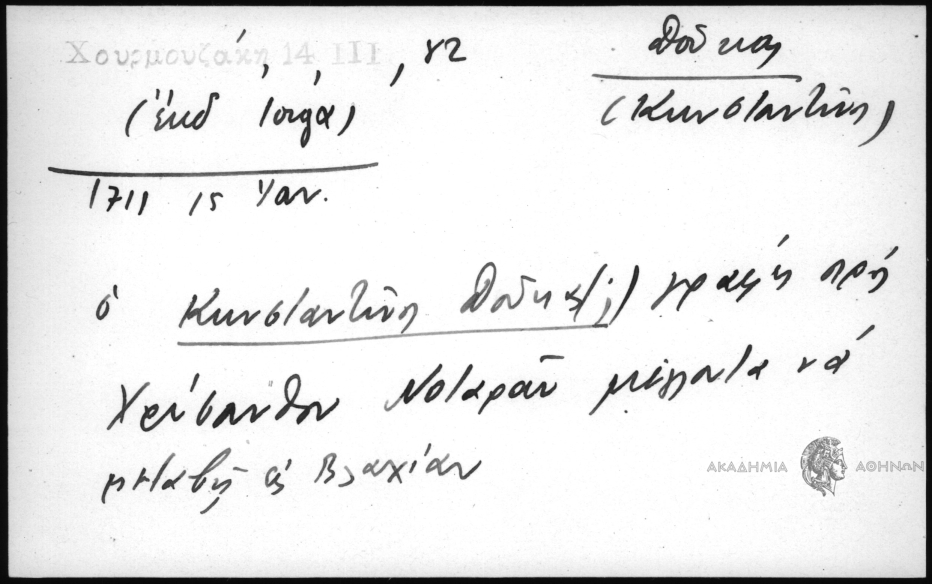 Χουρμουζάκη 14 III, 82
(ἔκδ Ἰόργα)
Δούκας
(Κωνσταντῖνος)
1711 15 Ἰαν.
ὁ Κωνσταντῖνος Δούκας (;) γράφει πρὸς
Χρύσανθον Νοταρᾶν μέλλοντα νὰ
μεταβῇ εἰς Βλαχίαν
ΑΚΑΔΗΜΙΑ ΑΘΗΝΩΝ